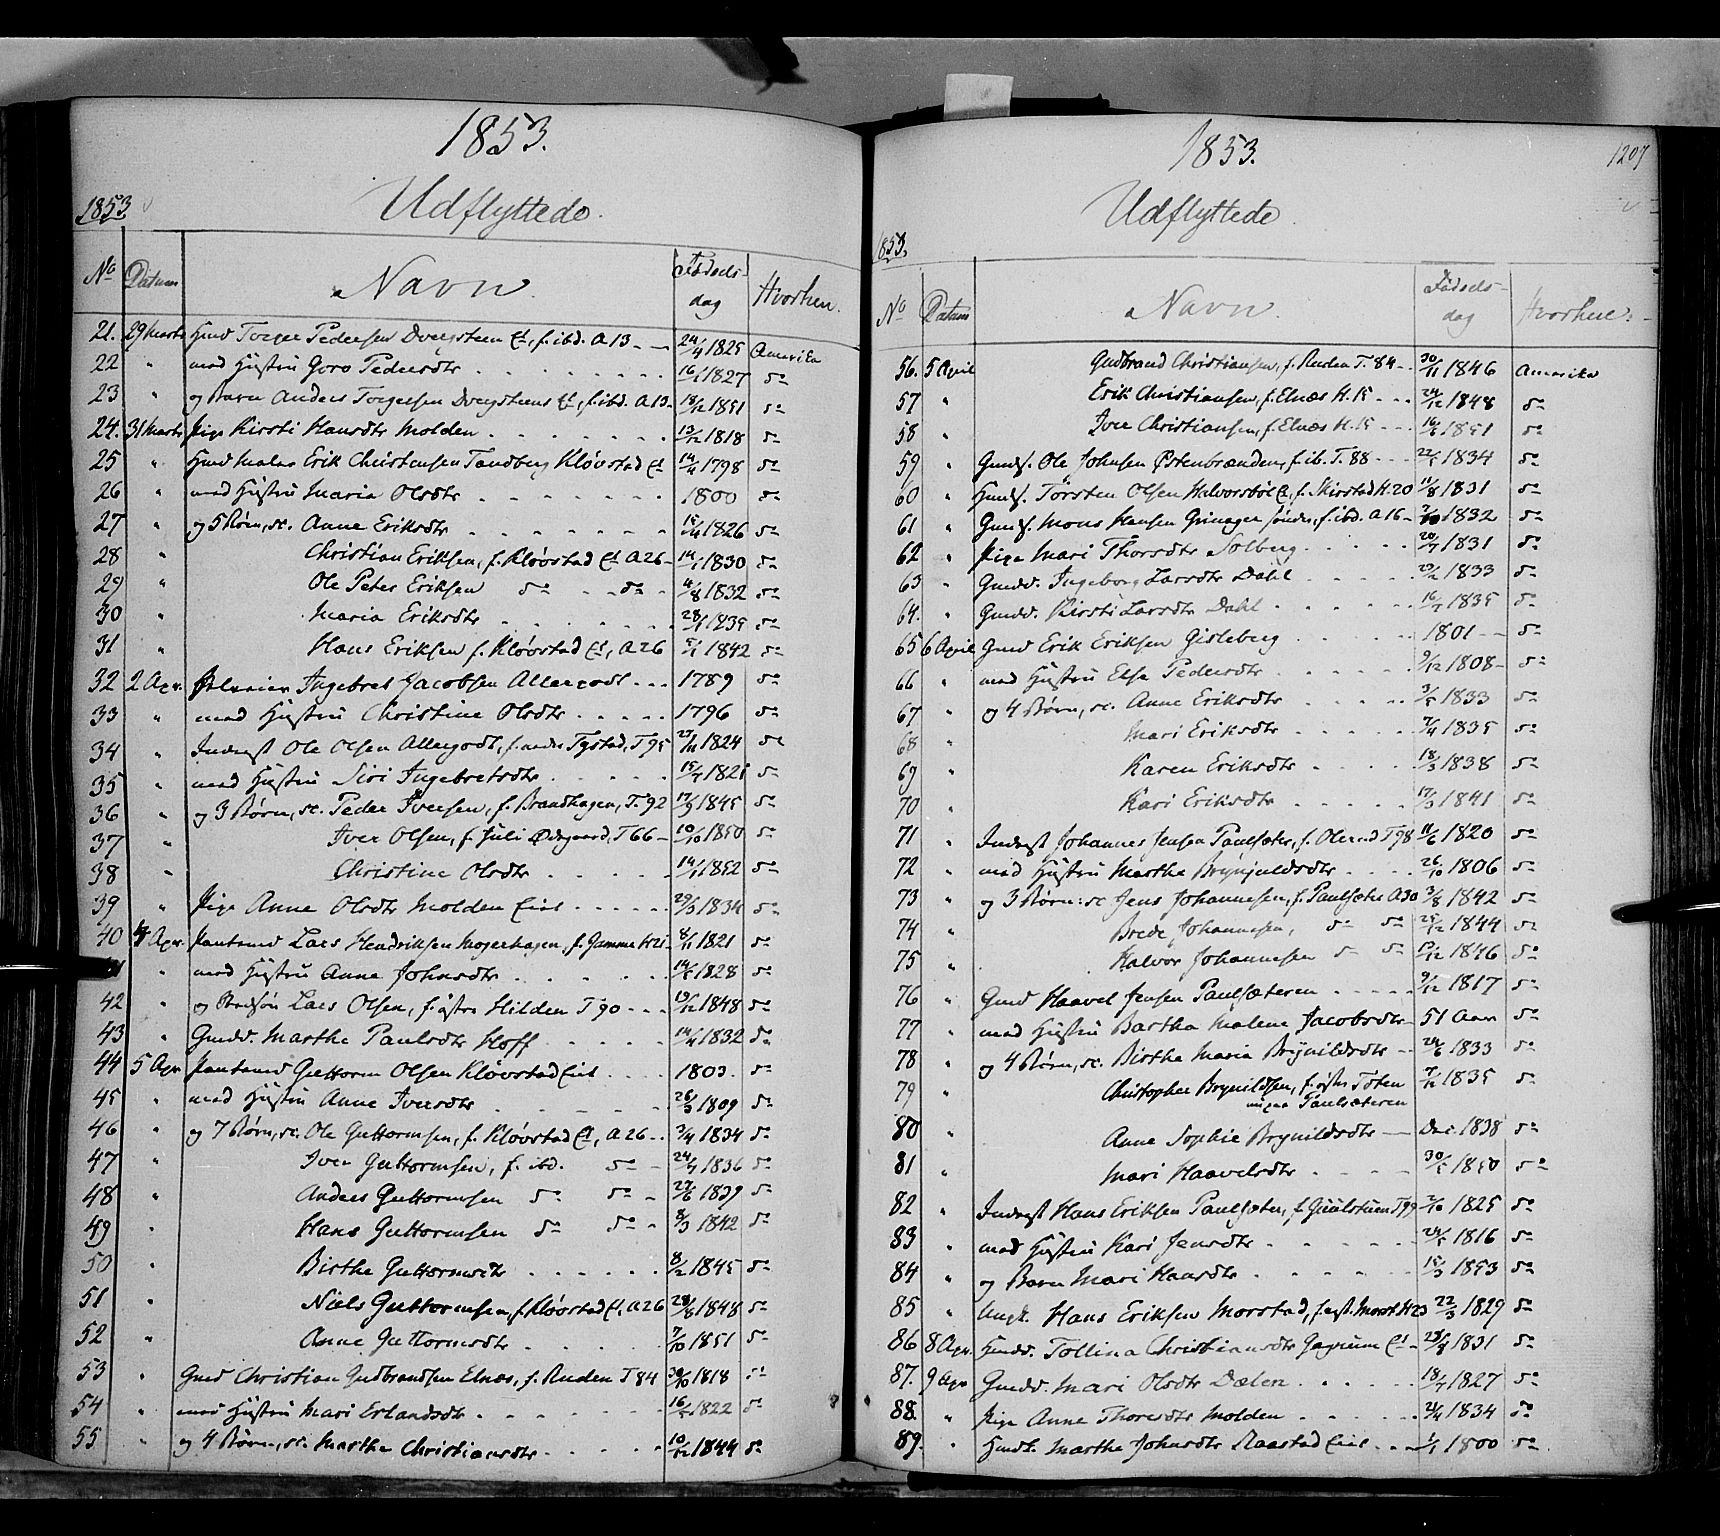 1853.
Udflyttede.
1853
No Datum Navn Fødselsdag Hvorhen.
21. 29 Marts Huusmd Torger Pedersen Dvergsteen Ei, f. ibd. A 13 24/4 1825 Amerika
22 " med Hustru Goro Pedersdtr 16/1 1827 do
23 " og Barn Anders Torgersen Dvergsteens Ei, f. ibd. A 13 18/12 1851 do
24. 31 Marts Pige Kirsti Hansdtr Molden 13/12 1818 do
25 " Erik Christensen Tandberg Kløvstad Ei 1798 do
26 " med Hustru Maria Olsdtr 1800 do
27 " og 5 Børn, sc. Anne Eriksdtr 1826 do
28 " Christian Eriksen, f. Kløvstad Ei A 26 14/1 1830 do
29 " Ole Peter Eriksen do do 4/8 1832 do
30 " Maria Eriksdtr 1835 do
31 " Hans Eriksen f. Kløvstad Ei, A 26 1842 do
32 2 Apr. Ingebret Jacobsen Allergodt 1789 do
33 " med Hustru Christine Olsdtr 1796 do
34 " Inderst Ole Olsen Allergodt, f. nedre Tystad, T 95 1824 do
35 " med Hustru Siri Ingebretsdtr 1821 do
36 " og 3 Børn, sc. Peder Iversen, f. Brandhagen, T. 92 17/9 1845 do
37 " Iver Olsen, f. Juli Ødegaard, T 66 10/10 1850 do
38 " Christine Olsdtr 14/1 1852 do
39 " Pige Anne Olsdtr Molden Eiet 29/3 1834 do
40 4 Apr. Lars Hendriksen Mogerhagen, f. Gamme H 21 8/11 1821 do
41 " med Hustru Anne Johnsdtr 1828 do
42 " og Lars Olsen, f. østre Hilden T 90 19/12 1848 do
43 " Gmdd. Marthe Paulsdtr Hoff 14/4 1832 do
44 5 Apr. Guttorm Olsen Kløvstad Eiet 1803. do
45 " med Hustru Anne Iversdtr 26/3 1809 do
46 " og 7 Børn, sc. Ole Guttormsen, f. Kløvstad Ei, A 26 1834 do
47 " Iver Guttormsen, f. ibd. do 1836 do
48 " Anders Guttormsen do do 27/6 1839 do
49 " Hans Guttormsen do do 8/3 1842 do
50 " Birthe Guttormsdtr 8/12 1845 do
51 " Niels Guttormsen, f. Kløvstad Ei, A 26 28/8 1848 do
52 " Anne Guttormsdtr 7/10 1851 do
53 " Gmd Christian Gudbrandsen Elnæs, f. Ruden T 84 30/10 1818 do
54 " med Hustru Mari Erlandsdtr 1822 do
55 " og 4 Børn, sc. Marthe Christiansdtr 10/12 1844 do
1853.
1207
Udflyttede
1853.
No Datum Navn. Fødselsdag Hvorhen:
56. 5 April Gudbrand Christiansen, f. Ruden T. 84 30/11 1846 Amerika
57 " Erik Christiansen, f. Elnæs H. 15 24/12 1848 do
58 " Iver Christiansen, f. Elnæs H. 15 1851 do
59 " Gmds. Ole Johnsen Østenbrænden, f. ib. T. 88 1834 do
60 " Hmds. Torsten Olsen Halvorsbøl Ei, f. Skirstad H. 20 11/8 1831 do
61 " Gmds. Mons Hansen Grinager søndre, f. ibd. A 16 1832 do
62 " Pige Mari Thorsdtr Solberg 1831 do
63 " Gmdd. Ingeborg Larsdtr Dahl 1833 do
64. " Gmdd. Kirsti Larsdtr Dahl 1835 do
65 6 April Gmd Erik Eriksen Gisleberg 1801 do
66 " med Hustru Else Pedersdtr 9/12 1808 do
67 " og 4 Børn, sc. Anne Eriksdtr 1833 do
68 " Mari Eriksdtr 7/4 1835 do
69 " Karen Eriksdtr 18/3 1838 do
70 " Kari Eriksdtr 17/3 1841 do
71 " Inderst Johannes Jensen Paulsæter, f. T 98 11/6 1820 do
72 " med Hustru Marthe Brynjuldsdtr 26/10 1806 do
73 " og 3 Børn: sc Jens Johannesen, f. Paulsæter A 30 3/8 1842 do
74 " Brede Johannesen, do do 1844 do
75 " Halvor Johannesen do do 1846 do
76 " Gmd Haavel Jensen Paulsæteren 9/12 1817 do
77 " med Hustru Bartha Malene Jacobsdtr 51 Aar do
78 " og 4 Børn, sc. Birthe Maria Brynildsdtr 1833 do
79 " Christopher Brynildsen, f. østre Toten 7/12 1835 do
Paulsæteren
80 " Anne Sophie Brynildsdtr Dec. 1838 do
81 " Mari Haavelsdtr 1850 do
82 " Inderst Hans Eriksen Paulsæter, f. T 99 1825 do
83 " med Hustru Kari Jensdtr 1816 do
84 " og Barn Mari Hansdtr 15/3 1853 do
85 " Ungk. Hans Eriksen Morstad, f. H 23 22/3 1829 do
86 8 Apr. Hmdd. Tollina Christiansdtr Ei 1831 do
87. 9 Apr Gmdd. Mari Olsdtr Dælen 18/7 1827 do
88. " Pige Anne Thoresdtr Molden 1834 do
89. " Marthe Johnsdtr Raastad Eiet 1/1 1800 do